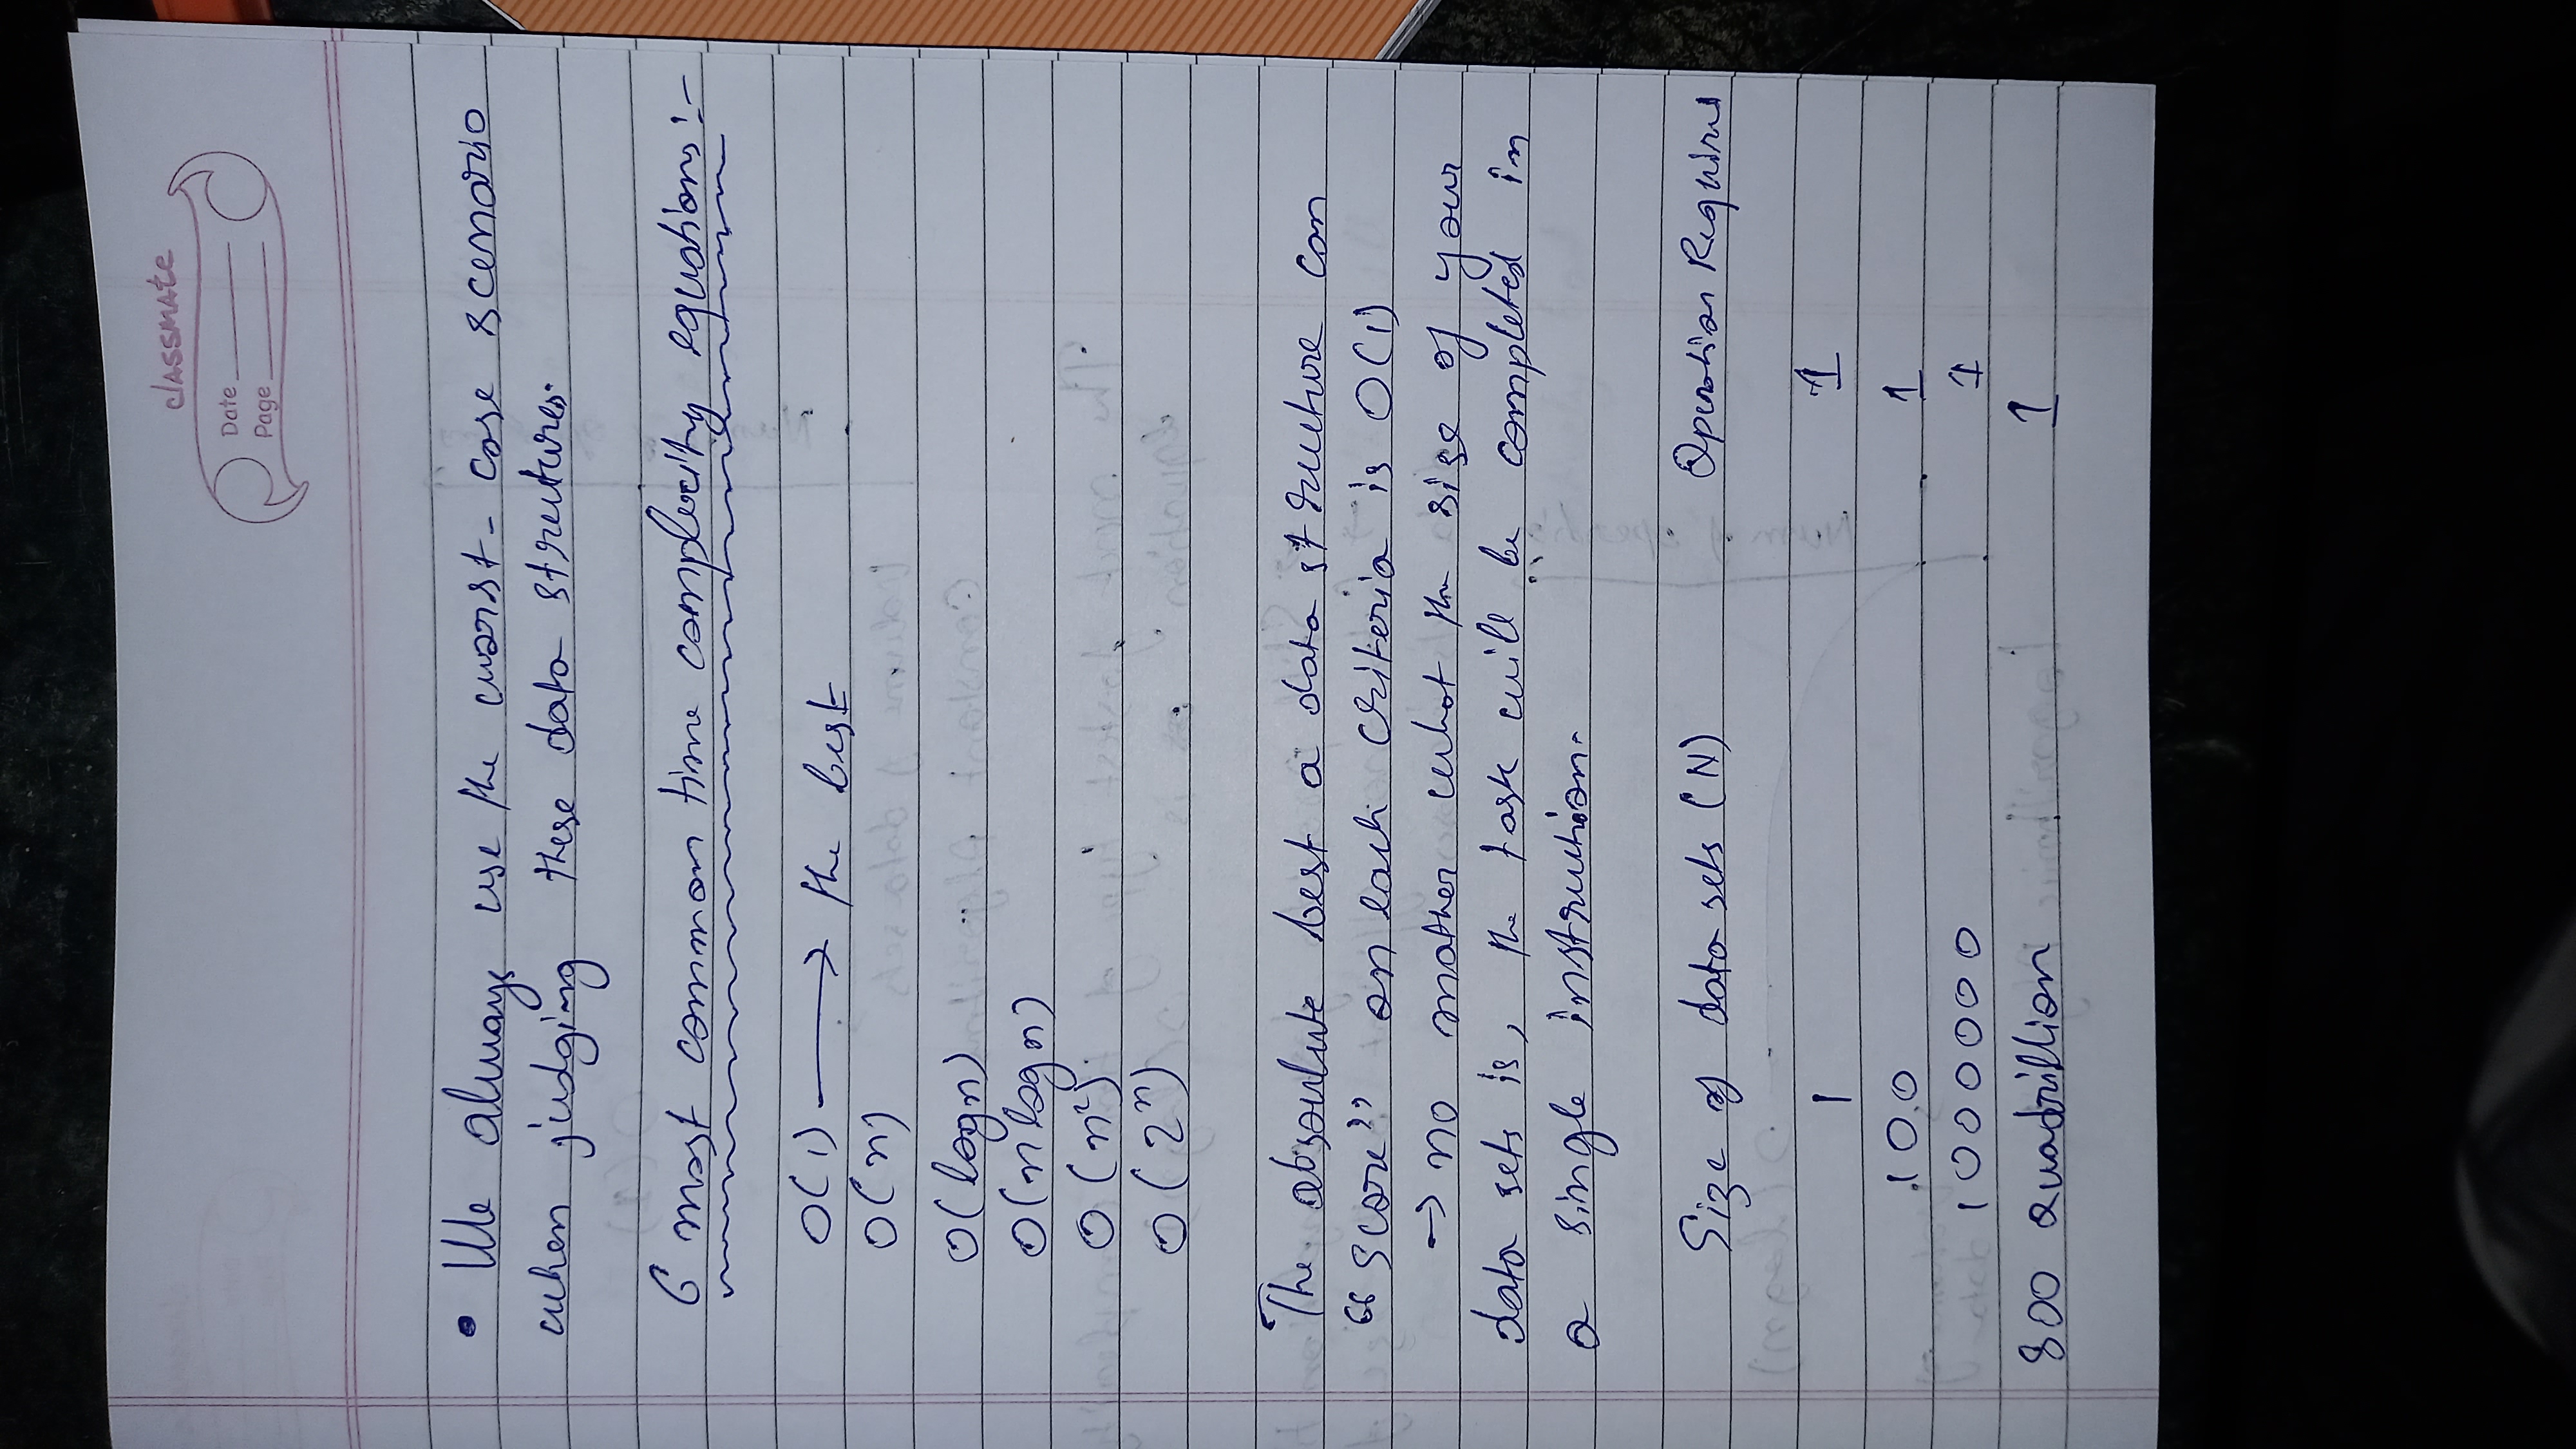 classmate
Date
Page
• We always use the worst-case scenario
when judging these data strutures.
6 most common time complexity equations:-
O(1) → the best
O(n)
O(logn)
O(nlogn)
O(n²)
O(2ⁿ)
The absoulute best a data structure can
“Score” on each criteria is O(1)
→ no mather what the size of your
data sets is, the task will be completed in
a single instruction.
Size of data sets (N) Operation Required
1 1
100 1
1000000 1
800 quadrillion 1